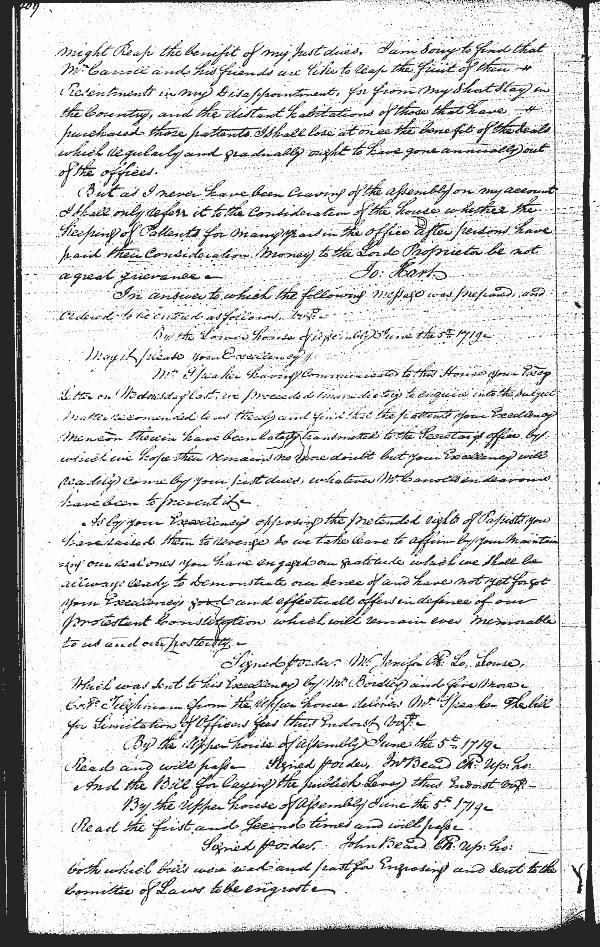 might Reap the benefit of my Just dues. I am Sorry to find that
Mr. Carroll and his friends are like to reap the fruit of their
Resentments in my Disappointment, for from my Short Stay in
the Country, and the distant habitations of those that have
purchased those patents I shall lose at once the benefit of the Seals
which regularly and gradually ought to have gone annually out
of the offices.
But as I never have been Craving of the assembly on my account
I shall only referr it to the Consideration of the house whether the
keeping of Patents for many years in the office after persons have
paid their Consideration Money to the Lord Proprietor be not
a great grievance
Jo: Hart
In answer to which the following message was prepared, and
ordered to be entred as follows. vizt.
By the Lower house of assembly June the 5th 1719
May it please your Excellency
Mr. Speaker having Communicated to this House your Excy
Letter on Wednesday last, we proceeded immediately to enquire into the subject
matter recomended to us thereby and find that the patents your Excellency
mencon therein have been lately transmitted to the Secretarys office by
which we hope there remains no more doubt but your Excellency will
readily come by your just dues, whatever Mr. Carrolls indeavours
have been to prevent it
As by your Excellencys opposing the pretended rights of Papists you
have raised them to revenge So we take leave to affirm by your Maintain
ing our real ones you have engaged our gratitude which we shall be
allways ready to Demonstrate our Sence of and have not yet forgot
your Excellencys good and effectuall offers in defence of our
Protestant Constitution which will remain ever memorable
to us and our posterity
Signed p order. M. Jenifer Cl. Lo. House,
Which was Sent to his Excellency by Mr. Bordley and five more
Coll. Tilghman from the upper house delivers Mr. Speaker the bill
for Limitation of Officers fees thus Endorst vizt.
By the upper house of Assembly June the 5th 1719
Read and will passe Signed p order, Jno Beard Cl. up: ho:
And the Bill for laying the publick Levy thus Endorst vizt.
By the upper house of Assembly June the 5th 1719
Read the first and Second times and will passe
Signed p order. John Beard Cl. up: ho:
both which bills were read and past for Engrossing and sent to the
Comittee of Laws to be engrost